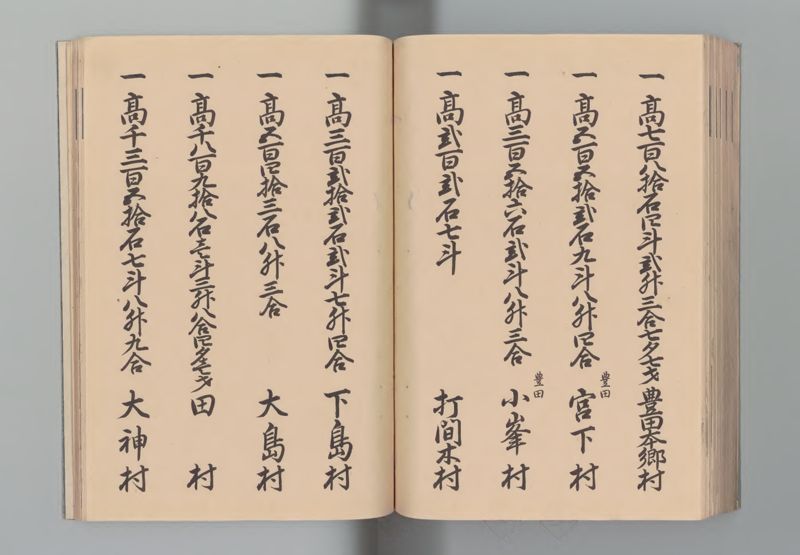 一高七百八拾石四斗弐升三合七夕七才 豊田本郷村
一高五百五拾弐石九斗八升四合 豊田 宮下村
一高三百五拾六石弐斗八升三合 豊田 小峯村
一高弐百弐石七斗 打間木村
一高三百弐拾弐石弐斗七升四合 下島村
一高五百四拾三石八升三合 大島村
一高千八百九拾八石壱斗三升八合四夕七才 田村
一高千三百五拾石七斗八升九合 大神村